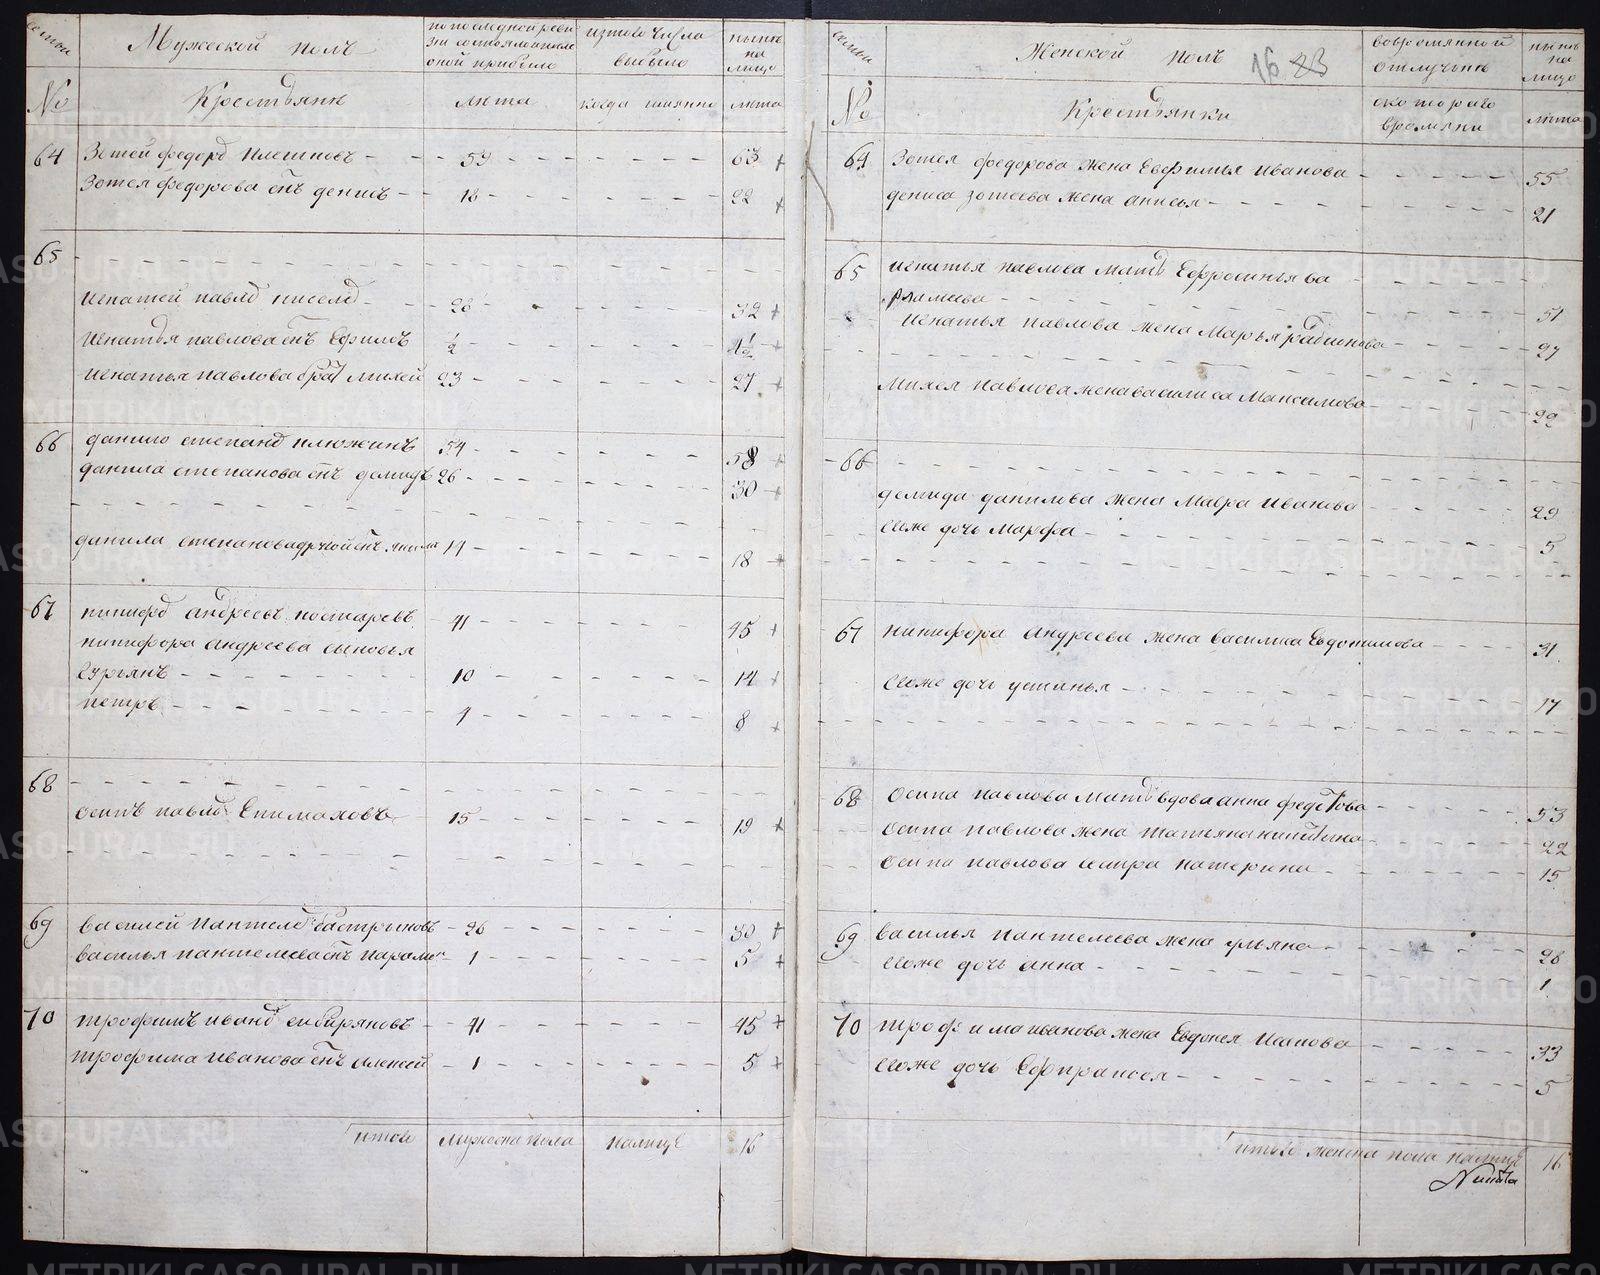 семьи
Мужеской полъ
по последной реви
зии состояло и после
оной прибыло
изтого числа
выбыло
нынѣ
на
лицо
№
Крестьянѣ
лѣта
когда имянно
лѣта
64 Зотей федоров - 59 - 63
Зотея федорова сынъ денисъ - 18 - 22
65
Игнатей павлов киселев - 28 - 32
Игнатья павлова сынъ Ефимъ ½ - 4½
Игнатья павлова брат михей 23 - 27
66 данило степанов илюхинъ 54 - 58
данила степанова сынъ демидъ 26 - 30
данила степанова другой сынъ 14 - 18
67 никифор андреевъ костаревъ 41 - 45
никифора андреева сыновья
Гурьянъ - 10 - 14
петръ - 4 - 8
68
осипъ павлов Епимаховъ 15 - 19
69 василей пантелеев бастриковъ - 26 - 30
василья пантелеева сынъ парамон - 1 - 5
70 трофимъ иванов сибиряковъ - 41 - 45
трофима иванова сынъ алексей - 1 - 5
итого мужеска пола налицо 16
семьи
Женской полъ
16 23
вовремянной
отлучкѣ
нынѣ
на
лицо
№
Крестьянки
скотораго
времяни
лѣта
64 Зотея федорова жена Евфимья иванова - 55
дениса зотеева жена анисья - 21
65 игнатья павлова мать Ефросинья ва
- 51
Игнатья павлова жена Марья радионова - 27
михея павлова жена василиса Максимова - 22
66
демида данилова жена Мавра иванова - 29
Ихже дочь марфа - 5
67 никифора андреева жена василиса Евдокимова - 31
Ихже дочь устинья - 17
68 осипа павлова мать вдова анна федотова - 53
осипа павлова жена татьяна никитина - 22
осипа павлова сестра катерина - 15
69 василья пантелеева жена ульяна - 28
Ихже дочь анна - 1
70 трофима иванова жена Евдокея - 33
Ихже дочь Ефпраксея - 5
итого женска пола налицо 16
METRIKI.GASO-URAL.RU